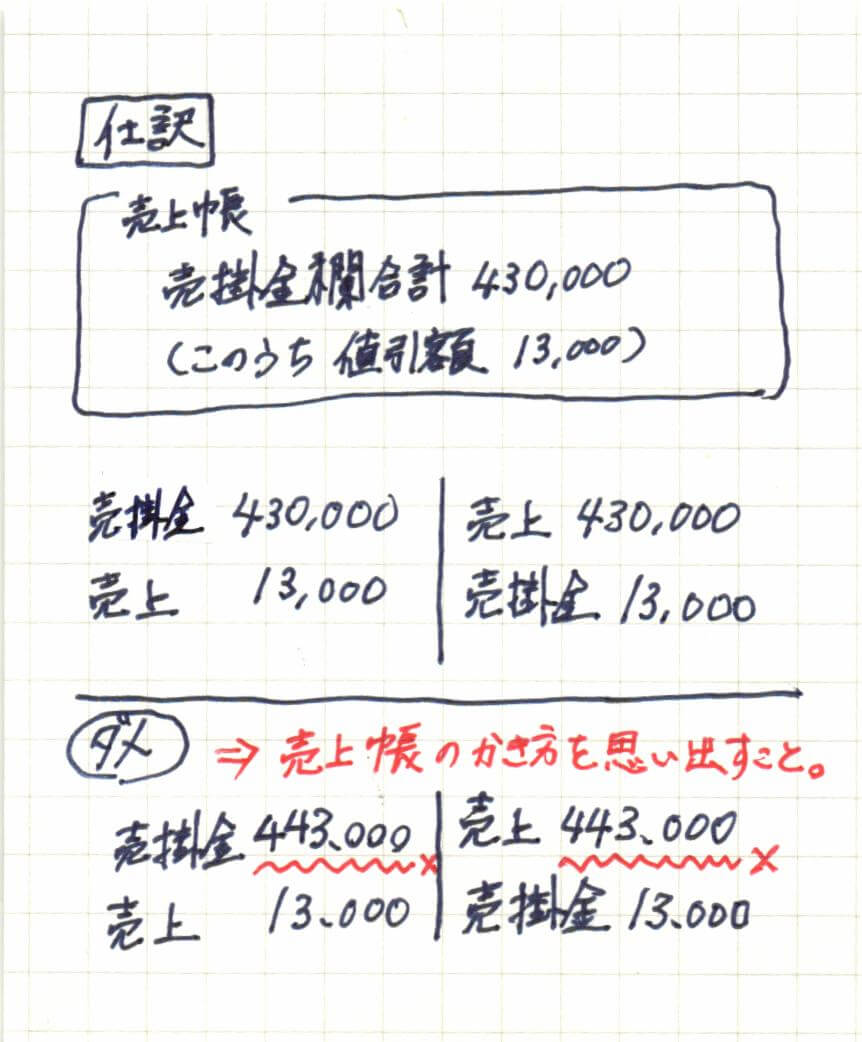 仕訳
売上帳
売掛金欄合計 430,000
(このうち 値引額 13,000)
売掛金 430,000 売上 430,000
売上 13,000 売掛金 13,000
ダメ ⇒ 売上帳のかき方を思い出すこと。
売掛金 443.000 x 売上 443、000 x
売上 13、000 売掛金 13、000